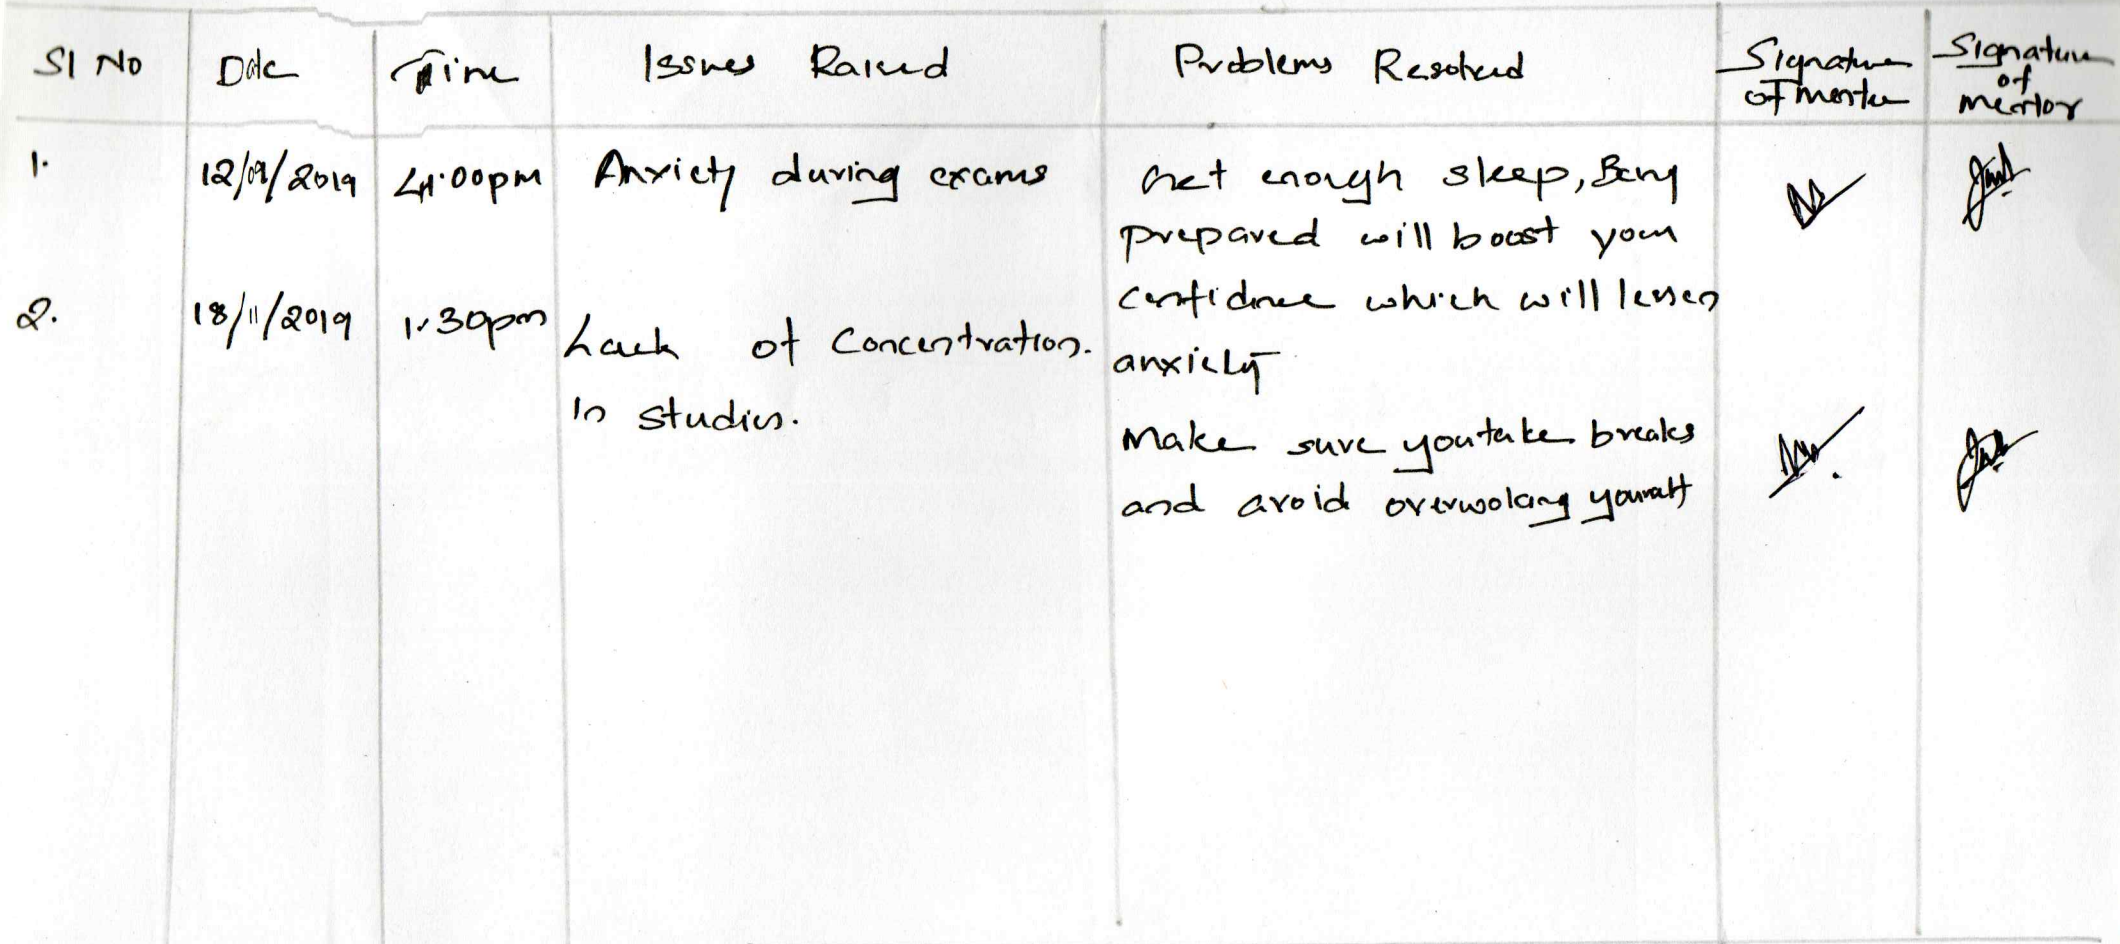 Sl No Date Time Issues Raised Problems Resolved Signature of mentee Signature of mentor
1. 12/09/2019 4:00pm Anxiety during exams Get enough sleep, Being
prepared will boost your
confidence which will lessen
2. 18/11/2019 1:30pm Lack of Concentration. anxiety
In studies.
Make sure you take breaks
and avoid overwoking yourself